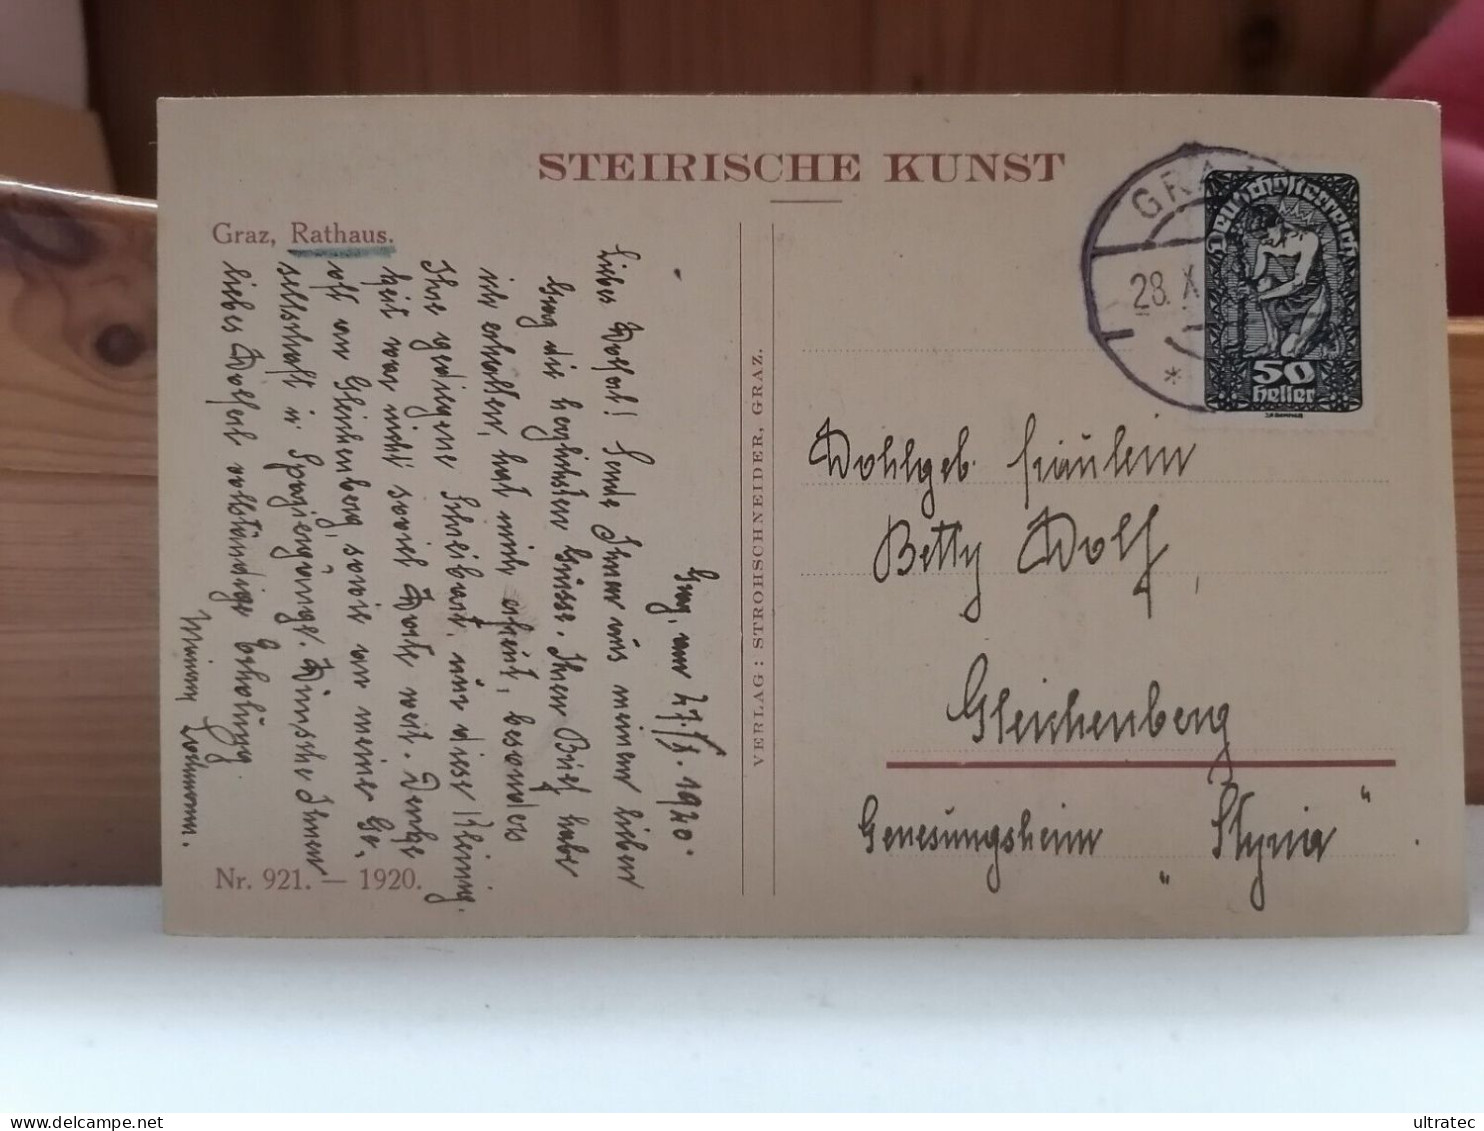 STEIRISCHE KUNST
Graz, Rathaus.
GRAZ
28. X
Deutschösterreich
50
Heller
Graz, am 27./X. 1920.
Liebes Wolferl! Sende Ihnen aus meinem lieben
Graz die herzlichsten Grüsse. Ihren Brief habe
ich erhalten, hat mich erfreut, besonders
Ihre gediegene Schreibart, nur diese Kleinig-
keit war nicht soviel Worte wert. Denke
oft an Gleichenberg, sowie an meine Ge-
sellschaft u Spaziergänge. Wünsche Ihnen
liebes Wolferl vollständige Erholung.
VERLAG: STROHSCHNEIDER, GRAZ.
Nr. 921. — 1920.
Wohlgeb. Fräulein
Betty Wolf,
Gleichenberg
Genesungsheim
„Styria“
ultratec